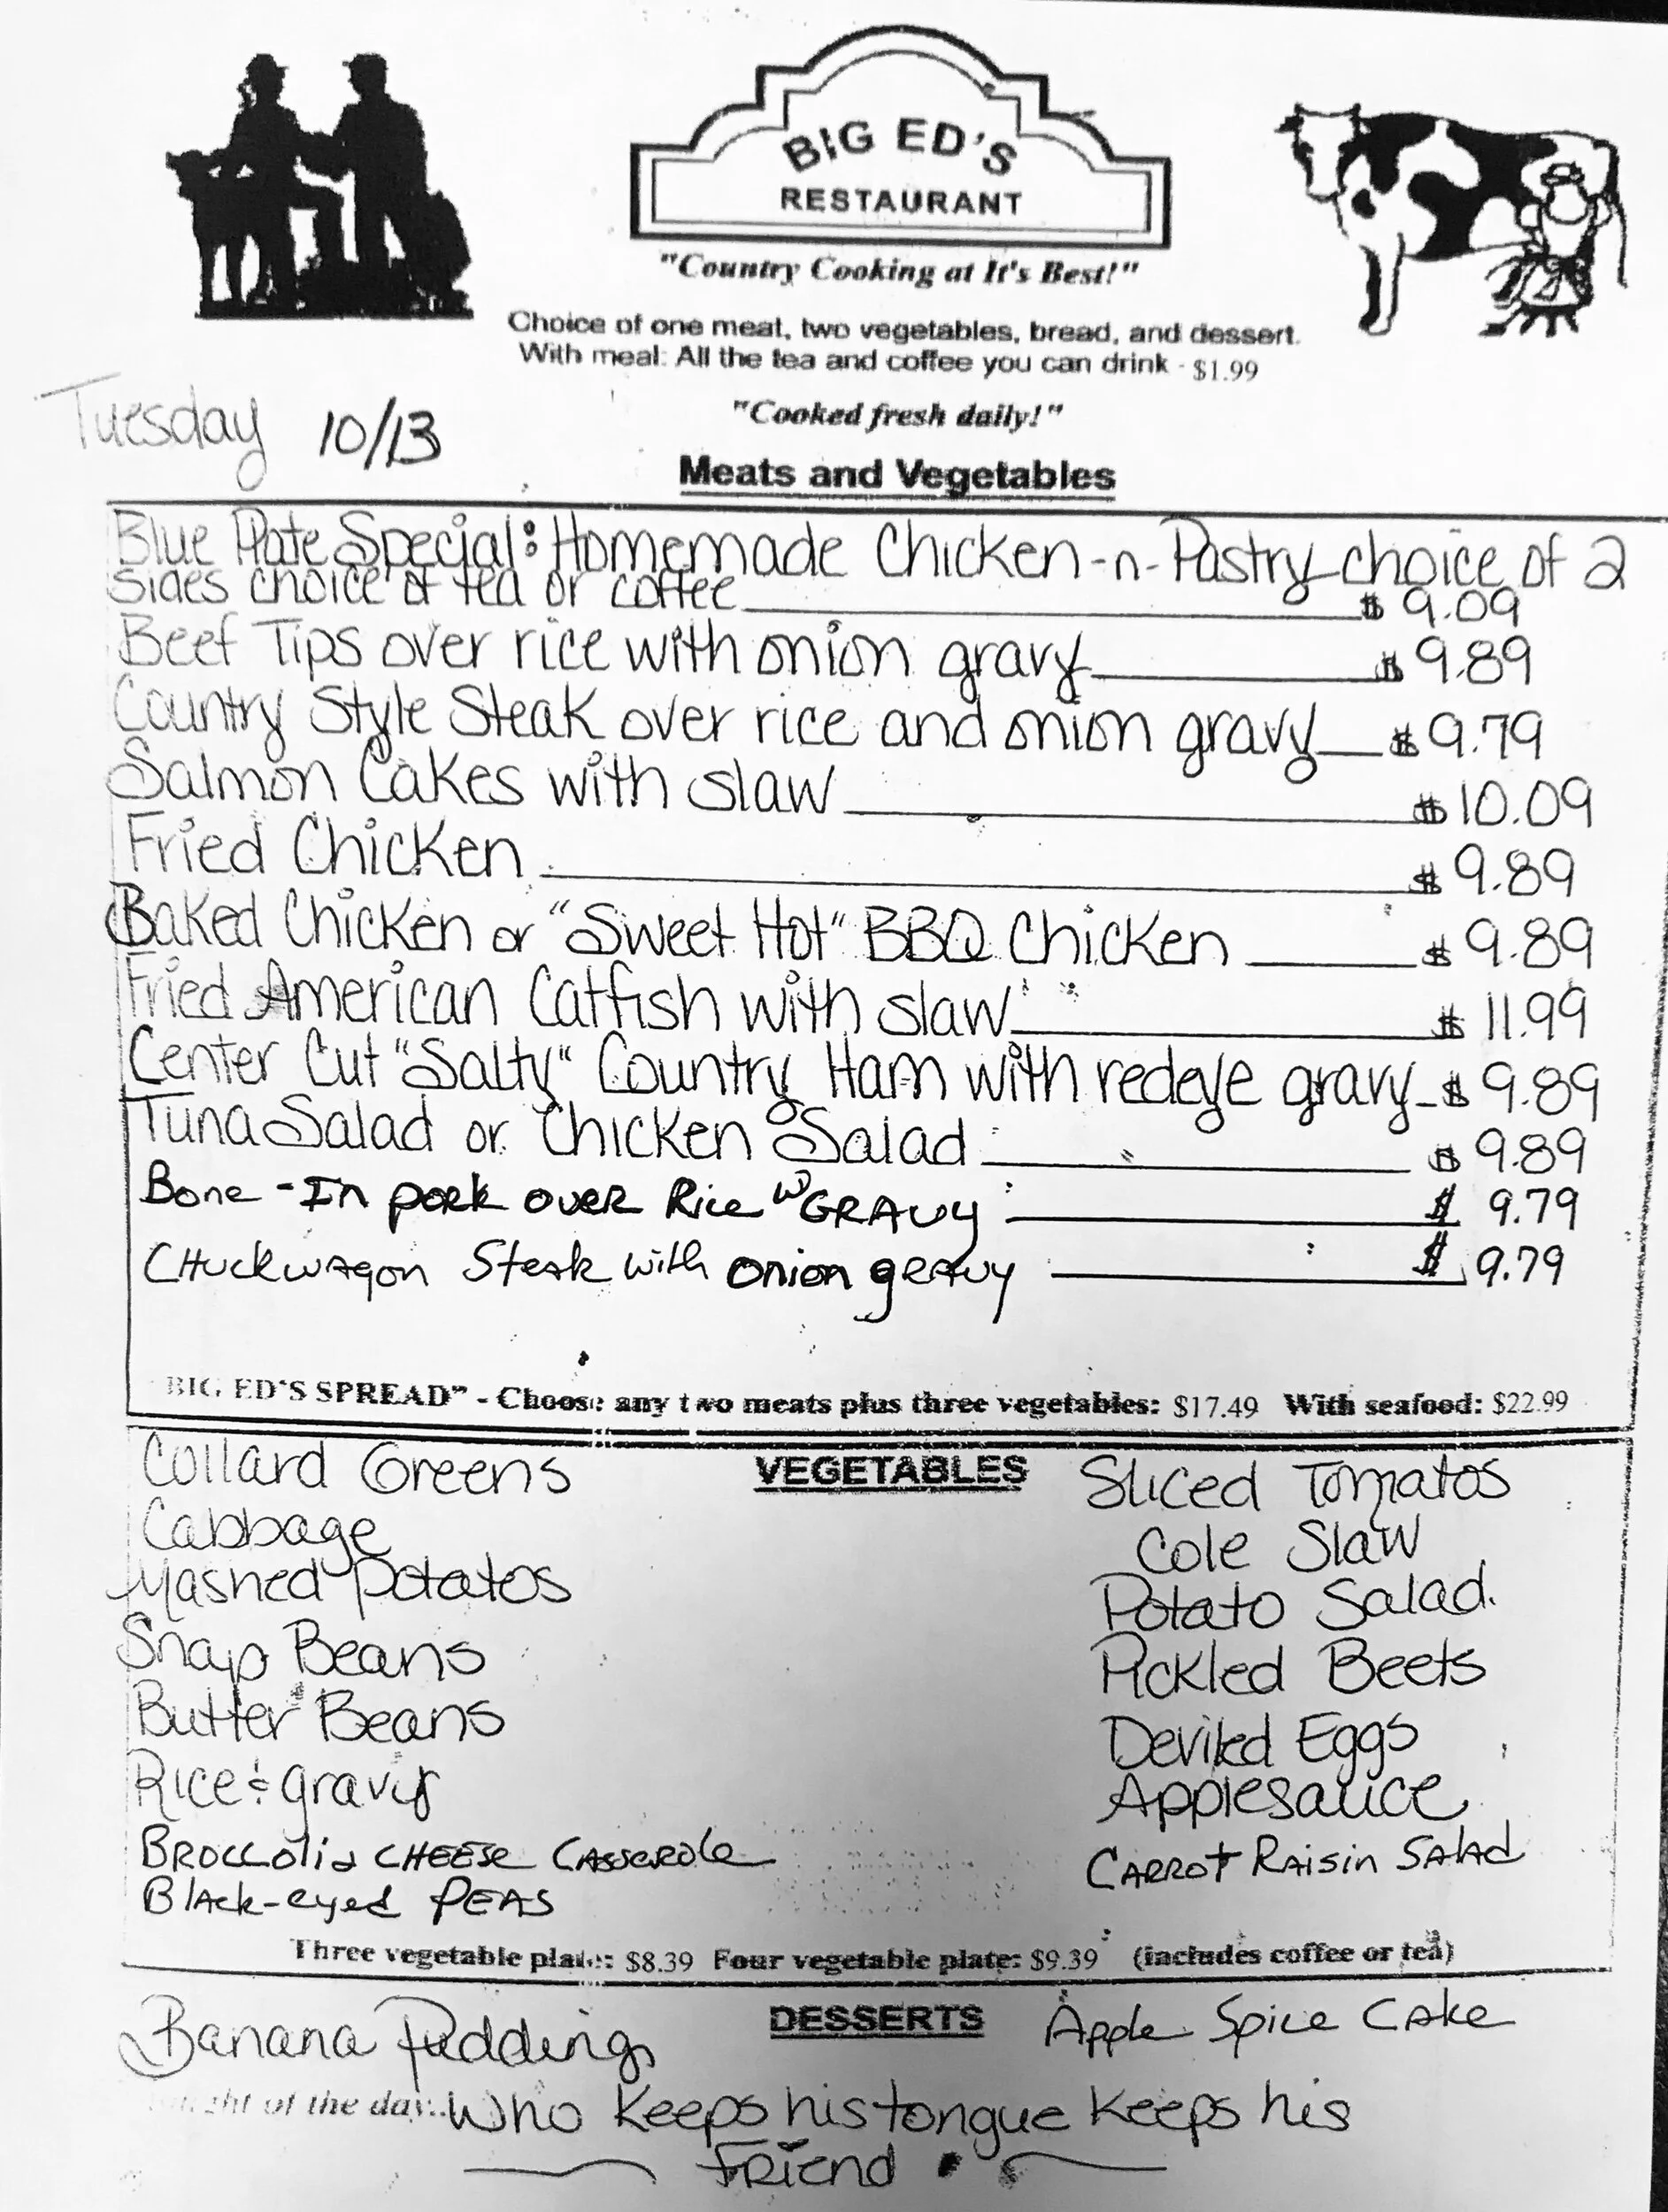 BIG ED'S
RESTAURANT
"Country Cooking at It's Best!"
Choice of one meat, two vegetables, bread, and dessert.
With meal: All the tea and coffee you can drink - $1.99
Tuesday 10/13
"Cooked fresh daily!"
Meats and Vegetables
Blue Plate Special: Homemade Chicken-n-Pastry choice of 2
sides choice of tea or coffee $ 9.09
Beef Tips over rice with onion gravy $ 9.89
Country Style Steak over rice and onion gravy $ 9.79
Salmon Cakes with slaw $ 10.09
Fried Chicken $ 9.89
Baked Chicken or "Sweet Hot" BBQ Chicken $ 9.89
Fried American Catfish with slaw $ 11.99
Center Cut "Salty" Country Ham with redeye gravy $ 9.89
Tuna Salad or Chicken Salad $ 9.89
Bone-In pork over Rice w/ GRAVY $ 9.79
CHuckwagon Steak with onion gravy $ 9.79
BIG ED'S SPREAD" - Choose any two meats plus three vegetables: $17.49 With seafood: $22.99
VEGETABLES
Collard Greens
Cabbage
Mashed Potatos
Snap Beans
Butter Beans
Rice & gravy
BROCCOLI & CHEESE CASSEROLE
Black-eyed PEAS
Sliced Tomatos
Cole Slaw
Potato Salad
Pickled Beets
Deviled Eggs
Applesauce
CARROT RAISIN SALAD
Three vegetable plate: $8.39 Four vegetable plate: $9.39 (includes coffee or tea)
DESSERTS
Banana Pudding
Apple Spice Cake
of the day: Who keeps his tongue keeps his
Friend.